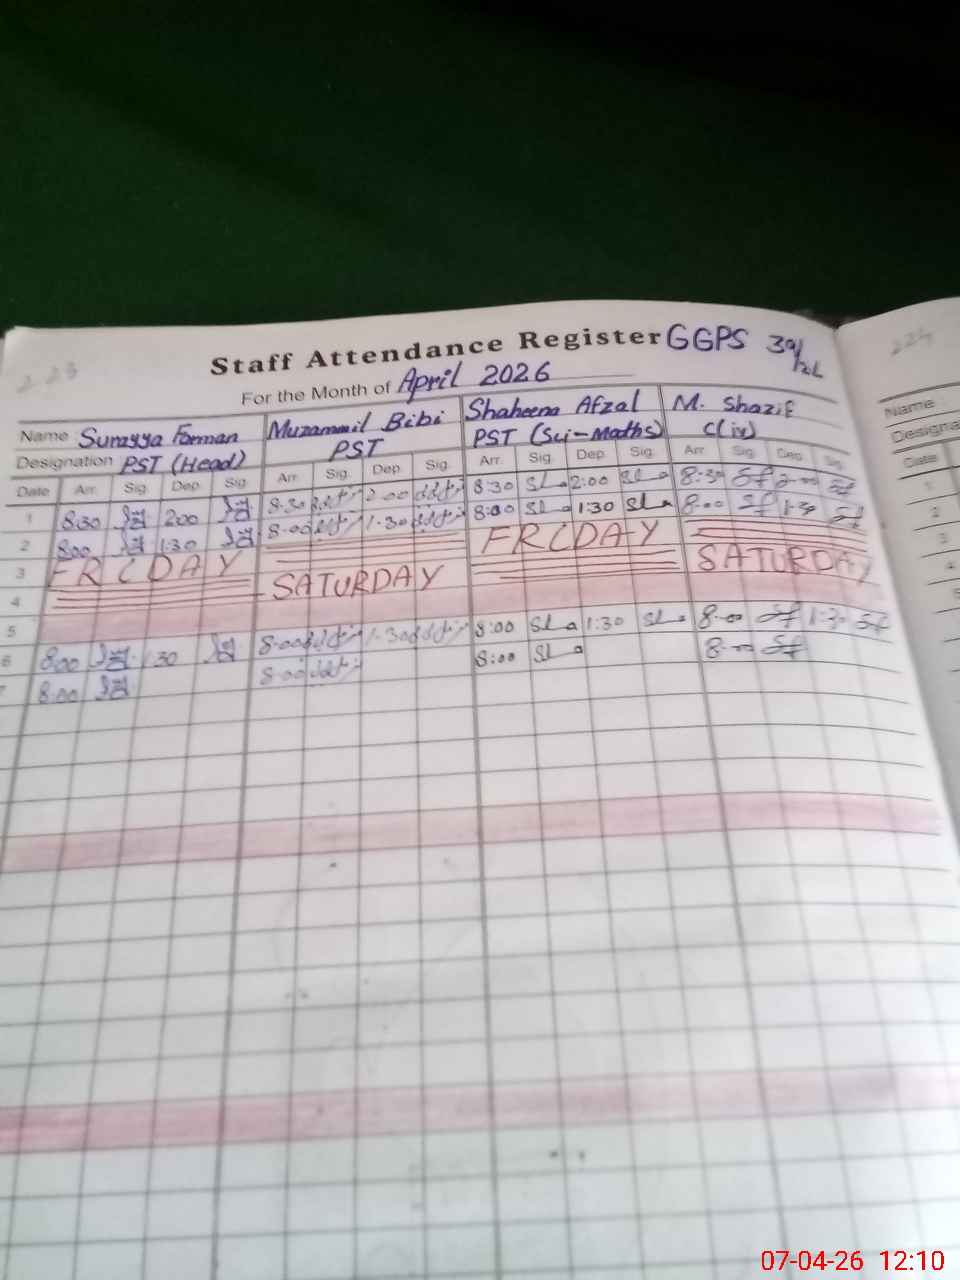 223
Staff Attendance Register GGPS 39/12L
224
For the Month of April 2026
Name Surayya Farman Muzammil Bibi Shaheena Afzal M. Shazif
Name
Designation PST (Head) PST PST (Sci-Maths) C(iv)
Designa
Date Arr. Sig. Dep. Sig. Arr. Sig. Dep. Sig. Arr. Sig. Dep. Sig. Arr. Sig. Dep. Sig.
Date
1 8:30 2:00 8:30 2:00 8:30 2:00 8:30 2:00
1
2 8:00 1:30 8:00 1:30 8:00 1:30 8:00 1:30
2
3 FRIDAY FRIDAY
3
4 SATURDAY SATURDAY
4
5
5
6 8:00 1:30 8:00 1:30 8:00 1:30 8:00 1:30
7 8:00 8:00 8:00 8:00
07-04-26 12:10